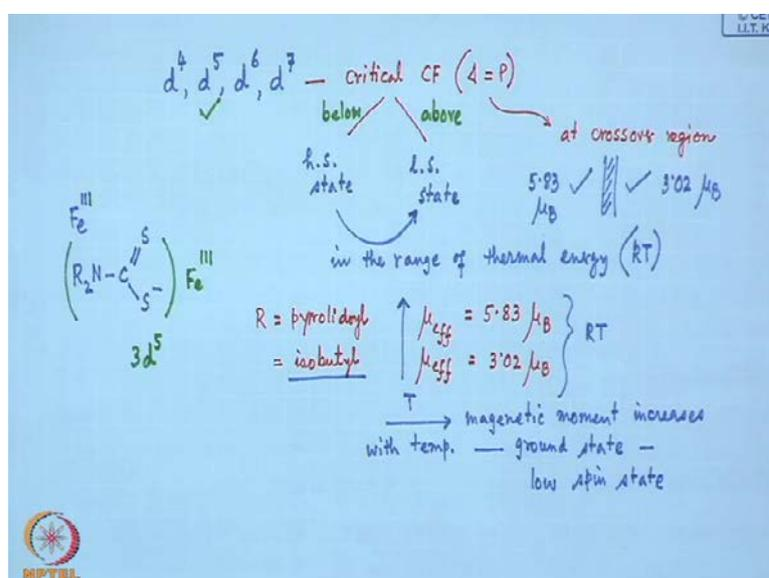 © CET
I.I.T. K
d⁴, d⁵, d⁶, d⁷ — critical CF (Δ = P)
below above
at crossover region
h.s. state
l.s. state
5.83 μB ✓ ✓ 3.02 μB
in the range of thermal energy (RT)
Fe^III
(R₂N–C
S
S⁻
) Fe^III
3d⁵
R = pyrolidoyl
= isobutyl
μeff = 5.83 μB
μeff = 3.02 μB
} RT
T
magenetic moment increases
with temp. — ground state —
low spin state
NPTEL